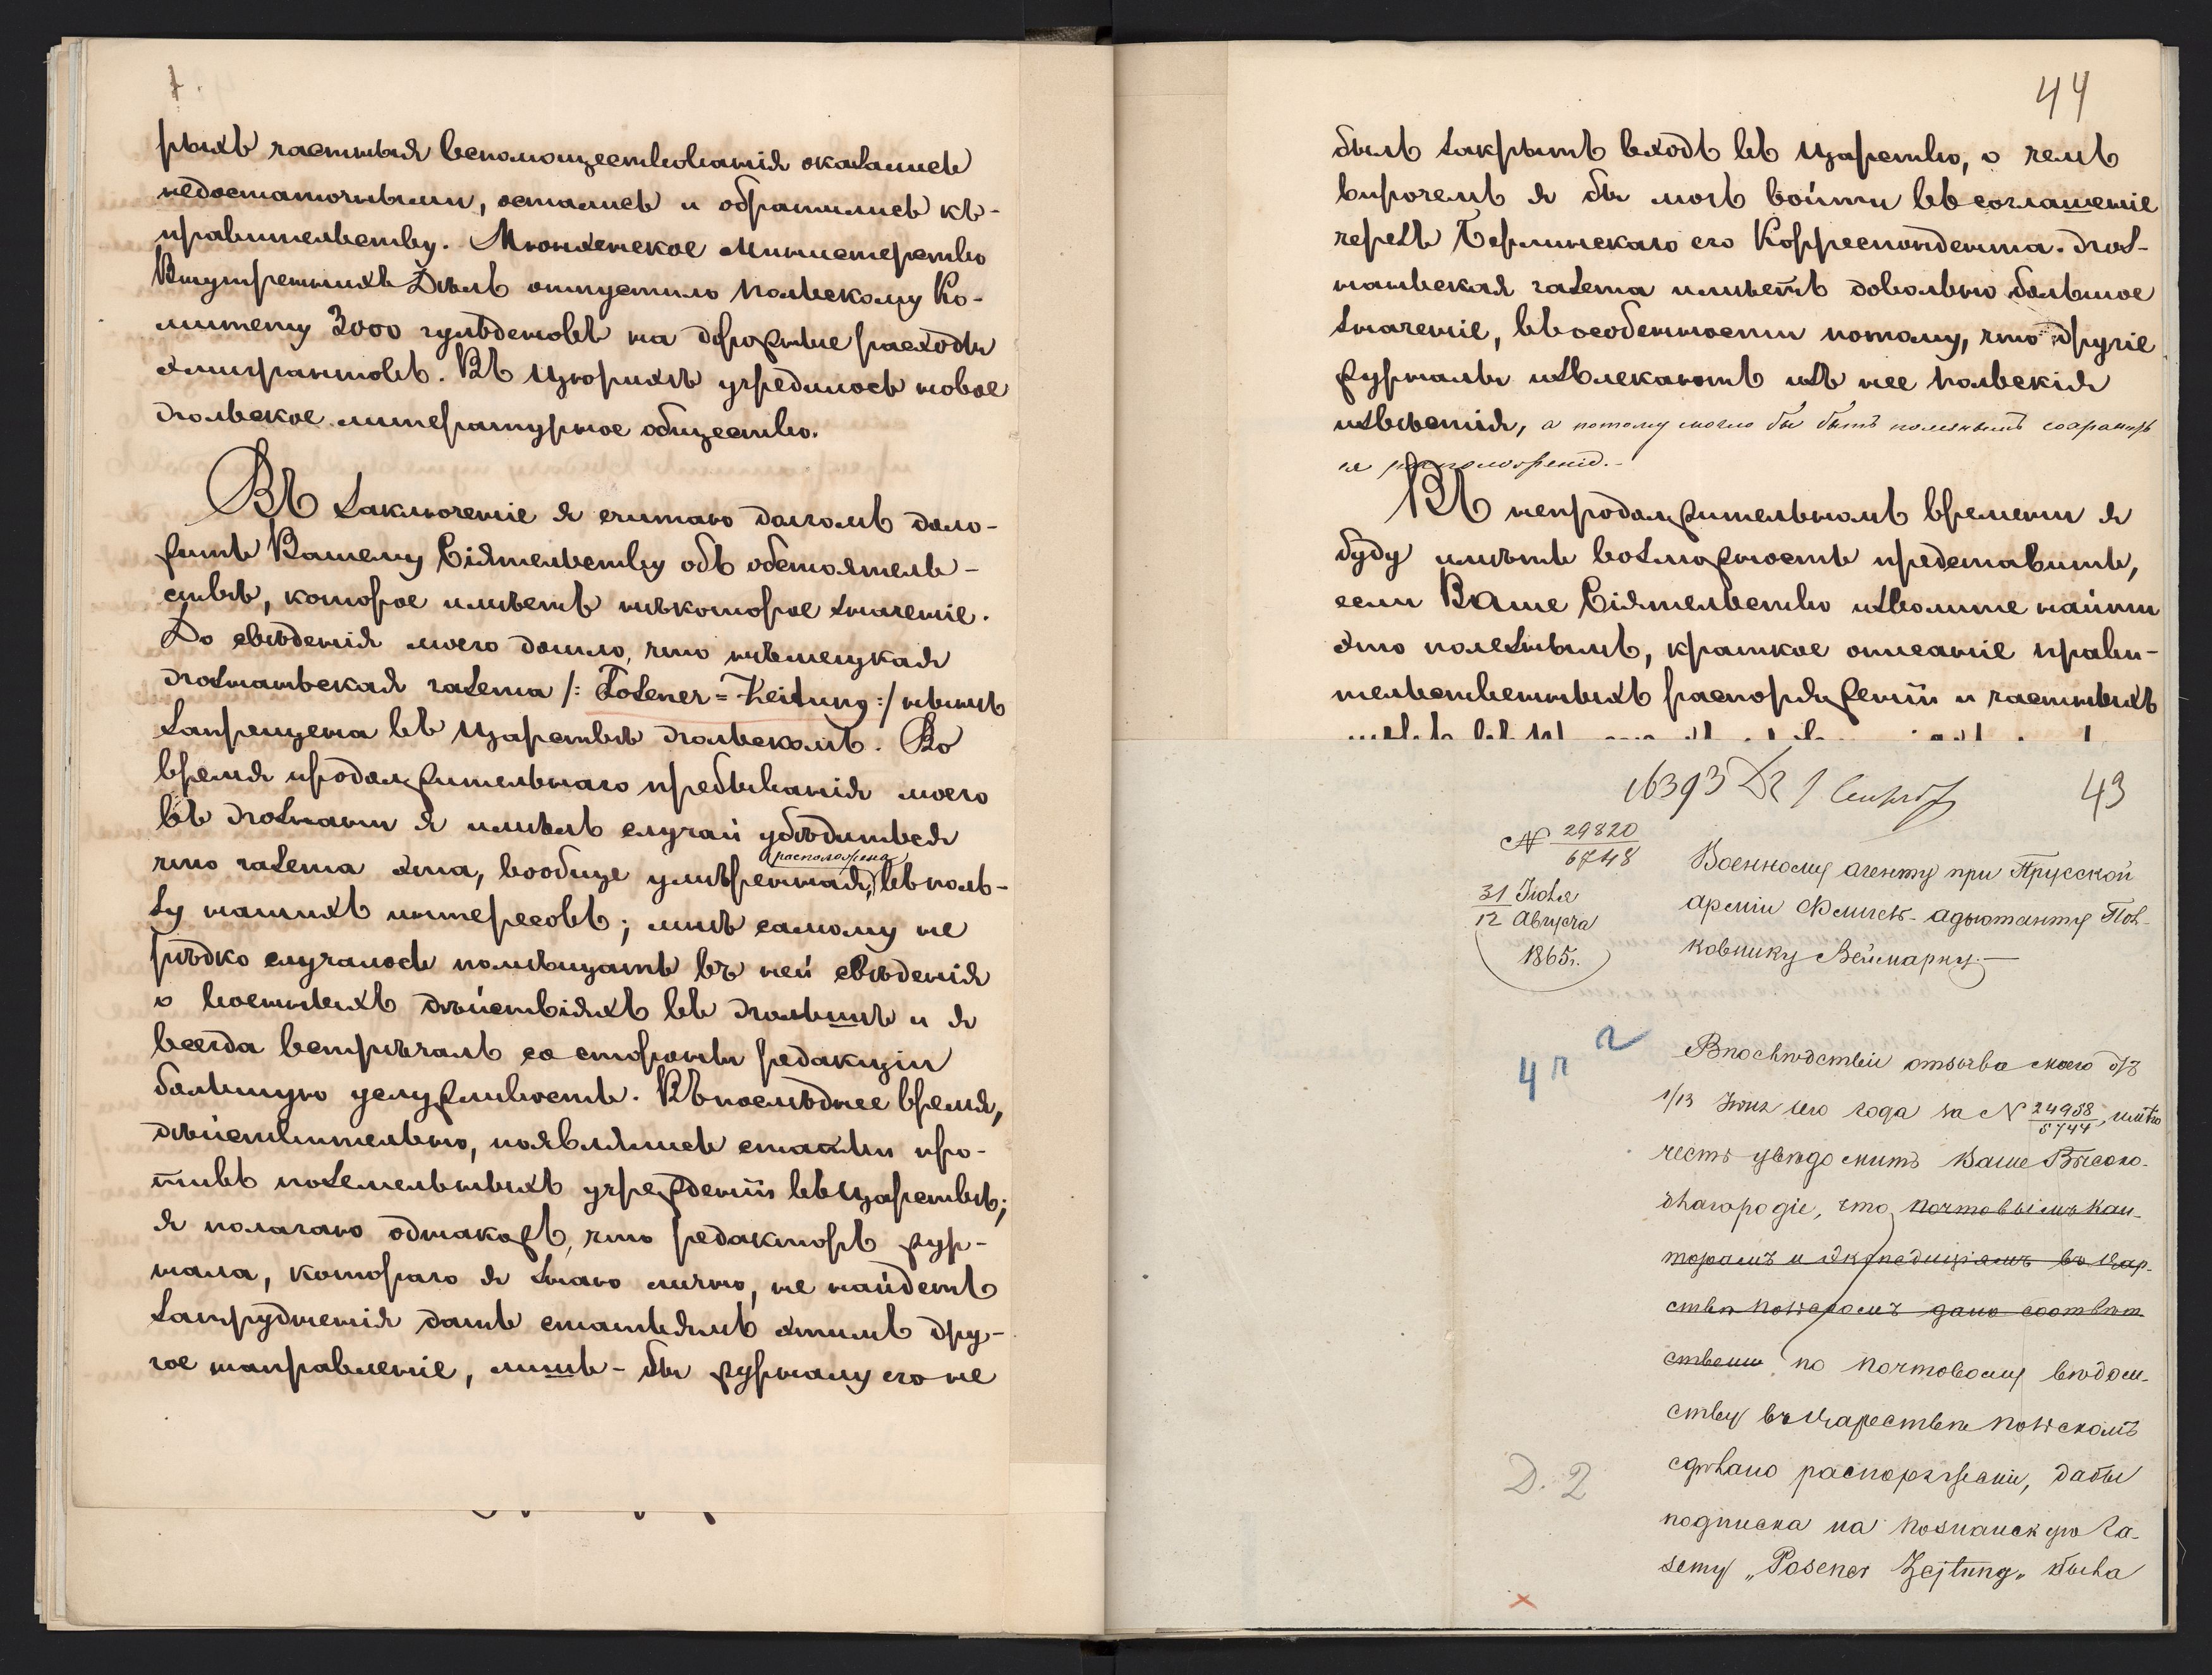 рыхъ частныя вспомоществованія оказались
недостаточными, остались и обратились къ-
правительству. Мюнхенское Министерство
Внутреннихъ Дѣлъ отпустило польскому Ко-
митету 3000 гульденовъ на дорожные расходы
эмигрантовъ. Въ Цюрихѣ учредилось новое
Польское литературное общество.
Въ заключеніе я считаю долгомъ доло-
жить Вашему Сіятельству объ обстоятель-
ствѣ, которое имѣетъ нѣкоторое значеніе.
До свѣденія моего дошло, что нѣмецкая
Познаньская газета /: Posener=Zeitung :/ нынѣ
запрещена въ Царствѣ Польскомъ. Во
время продолжительнаго пребыванія моего
въ Познани я имѣлъ случай убѣдиться
что газета эта, вообще умѣренная, въ поль-
расположена
зу нашихъ интересовъ; мнѣ самому не
рѣдко случалось помѣщать въ ней свѣденія
о военныхъ дѣйствіяхъ въ Польшѣ и я
всегда встрѣчалъ со стороны редакціи
большую услужливость. Въ послѣднее время,
дѣйствительно, появлялись статьи про-
тивъ поземельныхъ учрежденій въ Царствѣ;
я полагаю однакожъ, что редакторъ жур-
нала, котораго я знаю лично, не найдетъ
затрудненія дать статьямъ этимъ дру-
гое направленіе, лишь-бы журналу его не
44
былъ закрытъ входъ въ Царство, о чемъ
впрочемъ я бы могъ войти въ соглашеніе
черезъ Берлинскаго его Корреспондента. Поз-
наньская газета имѣетъ довольно большое
значеніе, въ особенности потому, что другіе
журналы извлекаютъ изъ нее польскія
извѣстія, а потому могло бы быть полезнымъ сохранить
ея расположеніе.-
Въ непродолжительномъ времени я
буду имѣть возможность представить,
если Ваше Сіятельство изволите найти
это полезнымъ, краткое описаніе прави-
тельственныхъ распоряженій и частныхъ
16393 1 Сентяб
43
№ 29820
6748
31 Іюля
12 Августа
1865г.
Военному агенту при Прусской
арміи Флигель-адъютанту Пол-
ковнику Веймарну.-
4
Впослѣдствіи отзыва моего отъ
1/13 Іюня сего года за № 24958/5744, имѣю
честь увѣдомить Ваше Высоко-
благородіе, что почтовымъ кон-
торамъ и экспедиціямъ въ Цар-
ствѣ Польскомъ дано соотвѣт-
ственн по почтовому вѣдом-
ству въ Царствѣ Польскомъ
сдѣлано распоряженіе, дабы
подписка на Познанскую Га-
зету „Posener Zejtung„ была
Д. 2